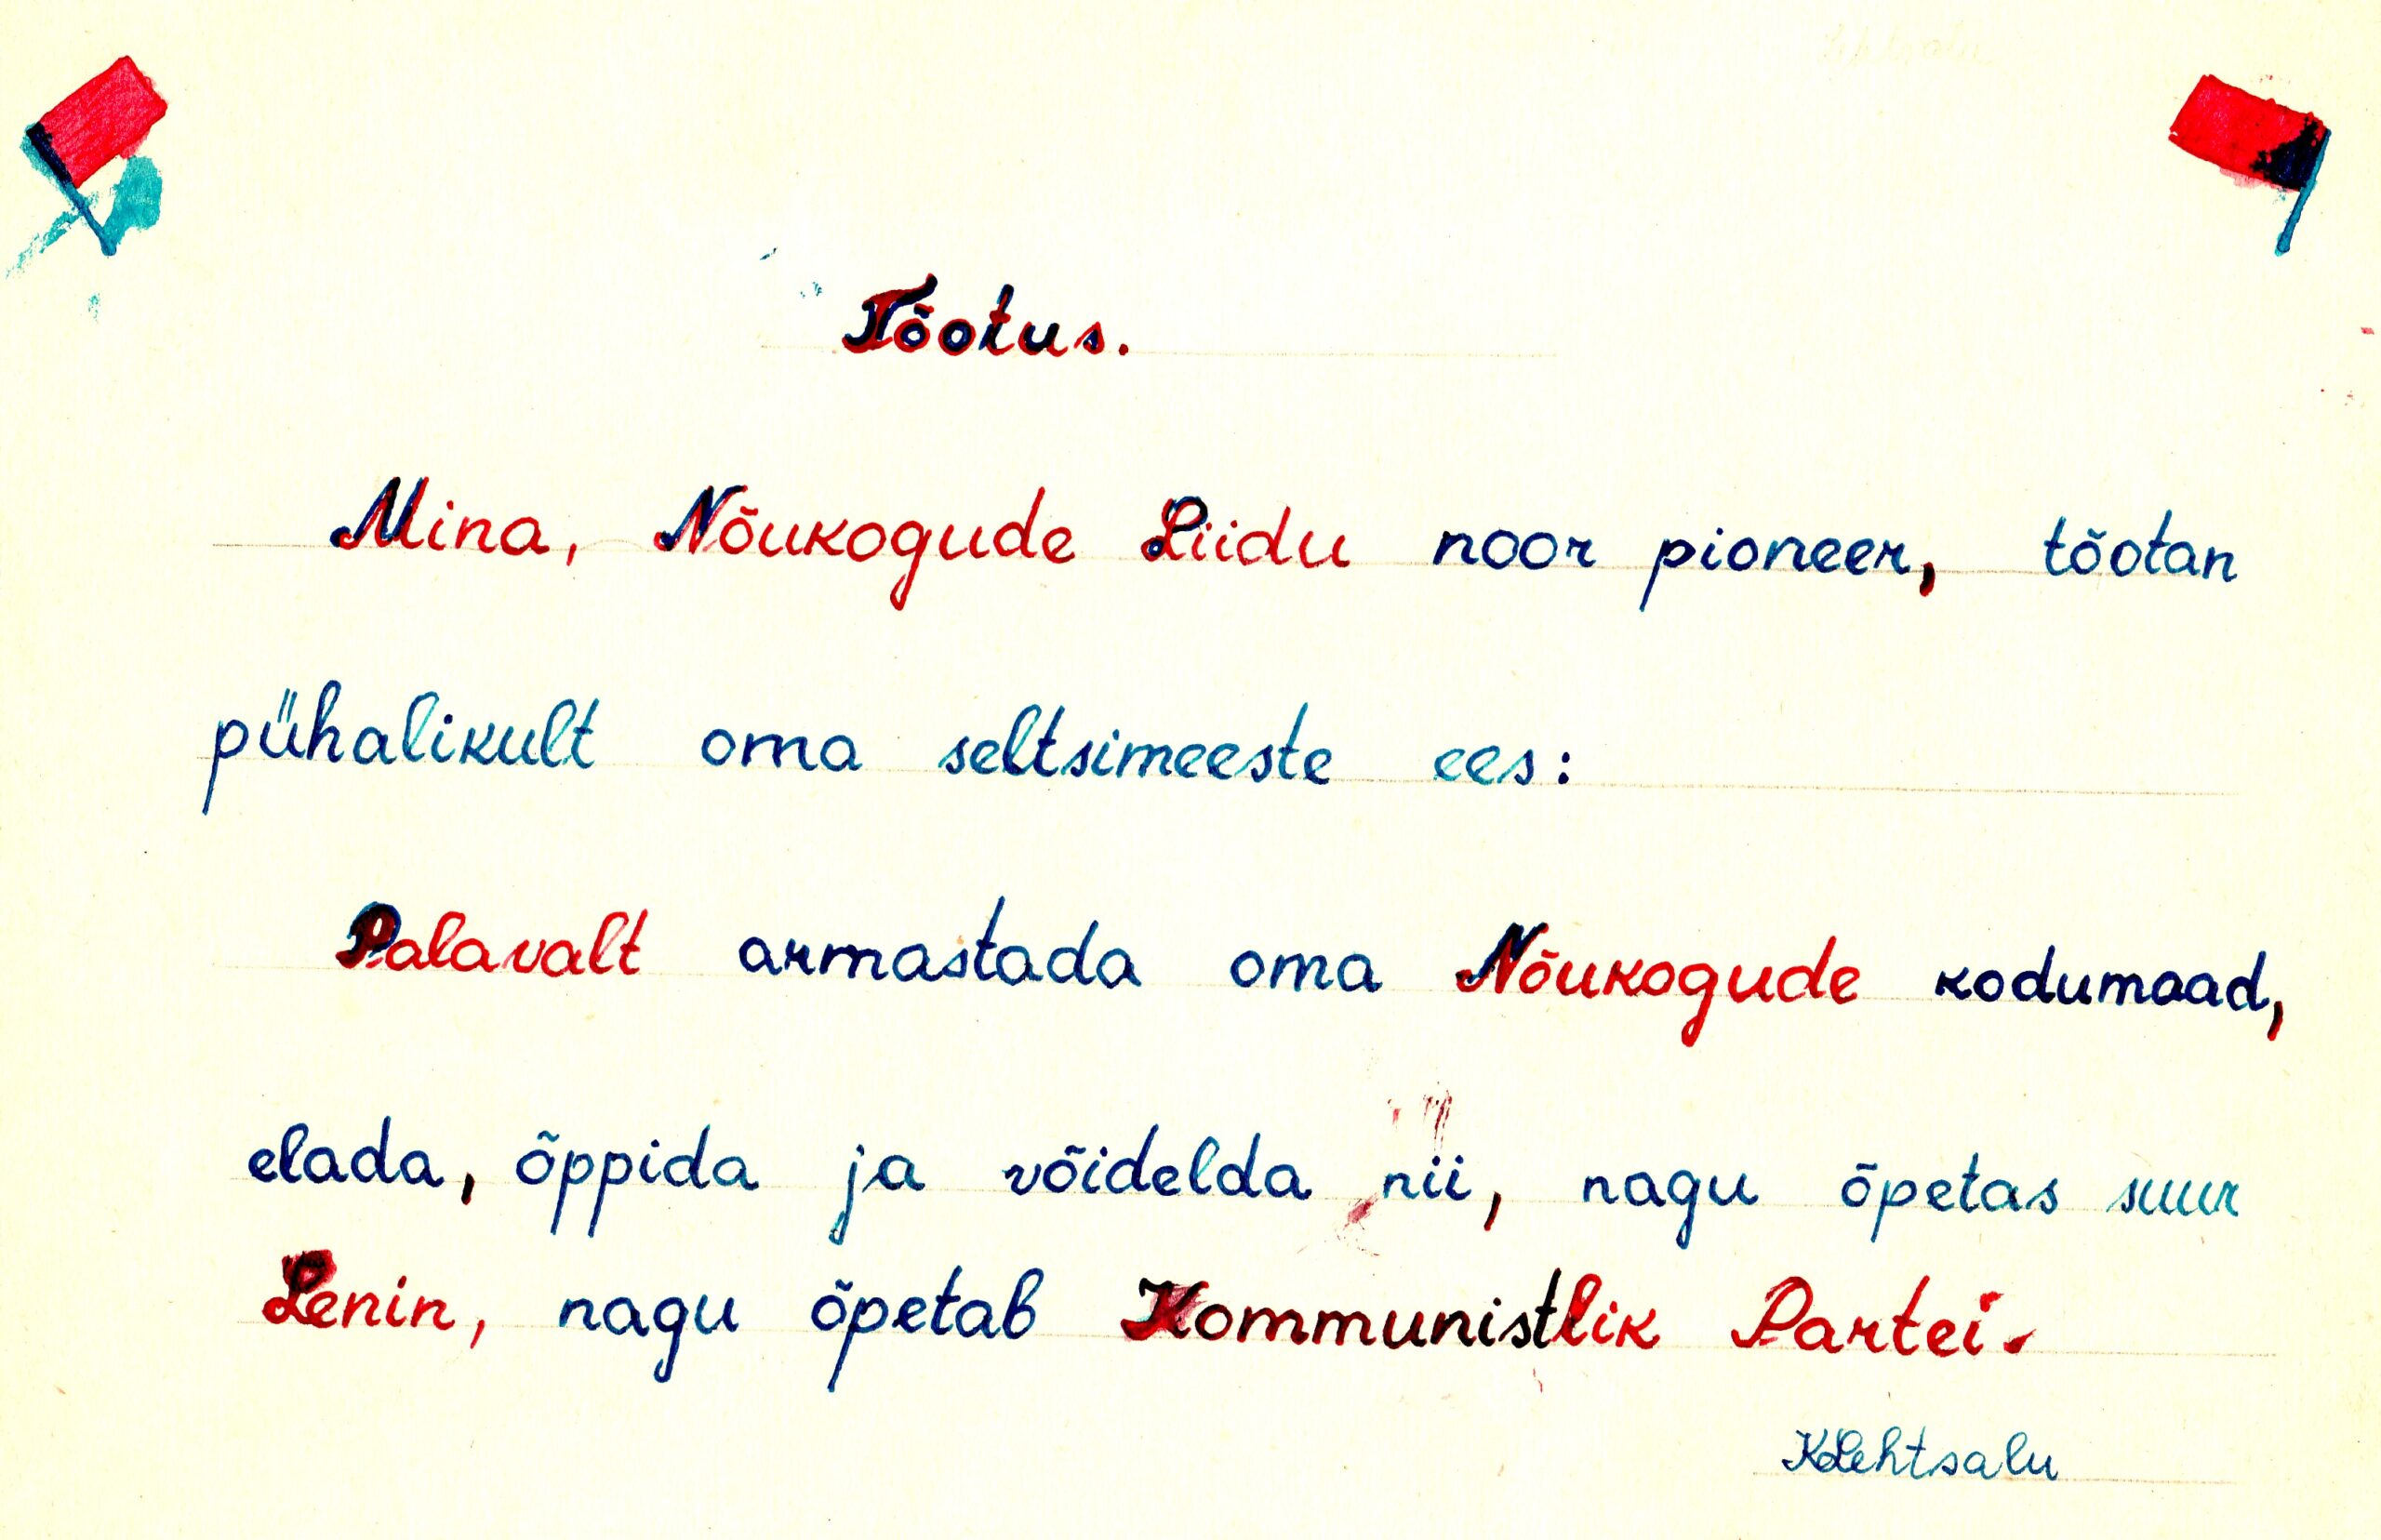 Tõotus.
Mina, Nõukogude Liidu noor pioneer, tõotan
pühalikult oma seltsimeeste ees:
Palavalt armastada oma Nõukogude kodumaad,
elada, õppida ja võidelda nii, nagu õpetas suur
Lenin, nagu õpetab Kommunistlik Partei.
KLehtsalu